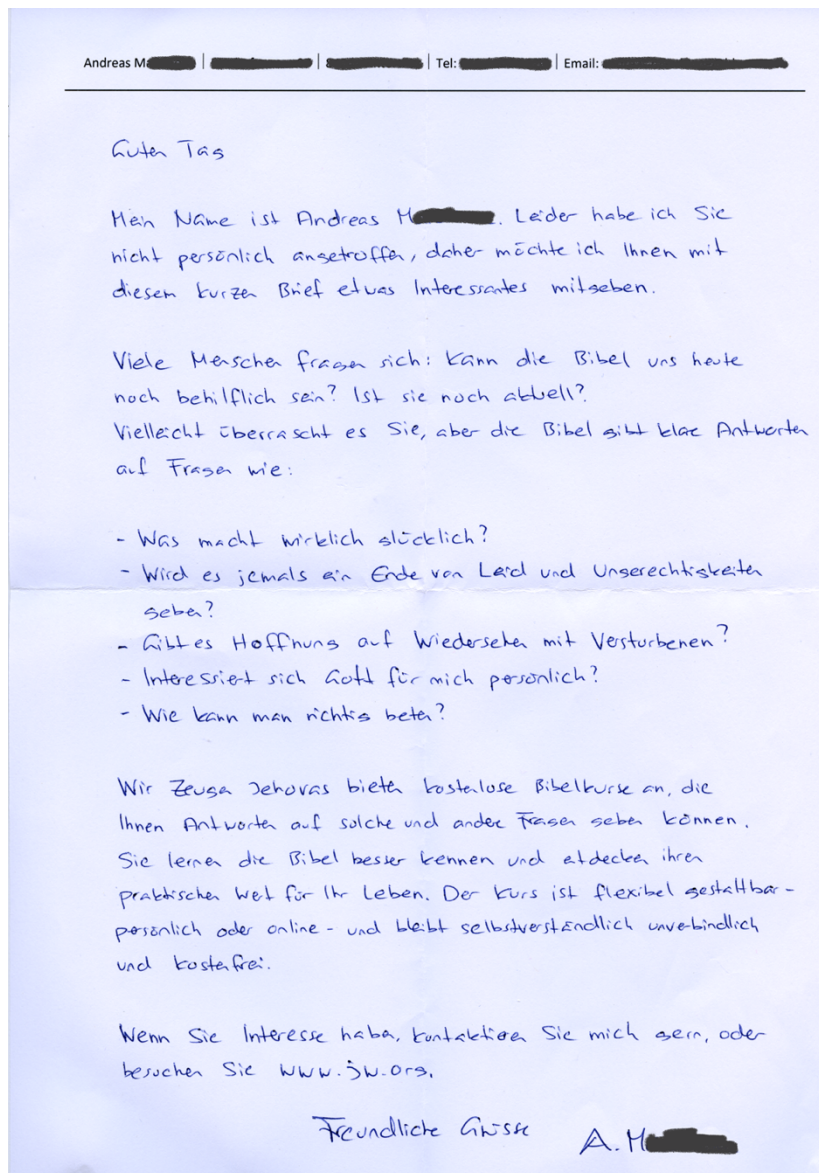 Andreas M | | | Tel: | Email:
Guten Tag
Mein Name ist Andreas M. Leider habe ich Sie
nicht persönlich angetroffen, daher möchte ich Ihnen mit
diesem kurzen Brief etwas Interessantes mitgeben.
Viele Menschen fragen sich: Kann die Bibel uns heute
noch behilflich sein? Ist sie noch aktuell?
Vielleicht überrascht es Sie, aber die Bibel gibt klare Antworten
auf Fragen wie:
- Was macht wirklich glücklich?
- Wird es jemals ein Ende von Leid und Ungerechtigkeiten
geben?
- Gibt es Hoffnung auf Wiedersehen mit Verstorbenen?
- Interessiert sich Gott für mich persönlich?
- Wie kann man richtig beten?
Wir Zeugen Jehovas bieten kostenlose Bibelkurse an, die
Ihnen Antworten auf solche und andere Fragen geben können.
Sie lernen die Bibel besser kennen und entdecken ihren
praktischen Wert für Ihr Leben. Der Kurs ist flexibel gestaltbar -
persönlich oder online - und bleibt selbstverständlich unverbindlich
und kostenfrei.
Wenn Sie Interesse haben, kontaktieren Sie mich gern, oder
besuchen Sie www.jw.org.
Freundliche Grüsse A. M